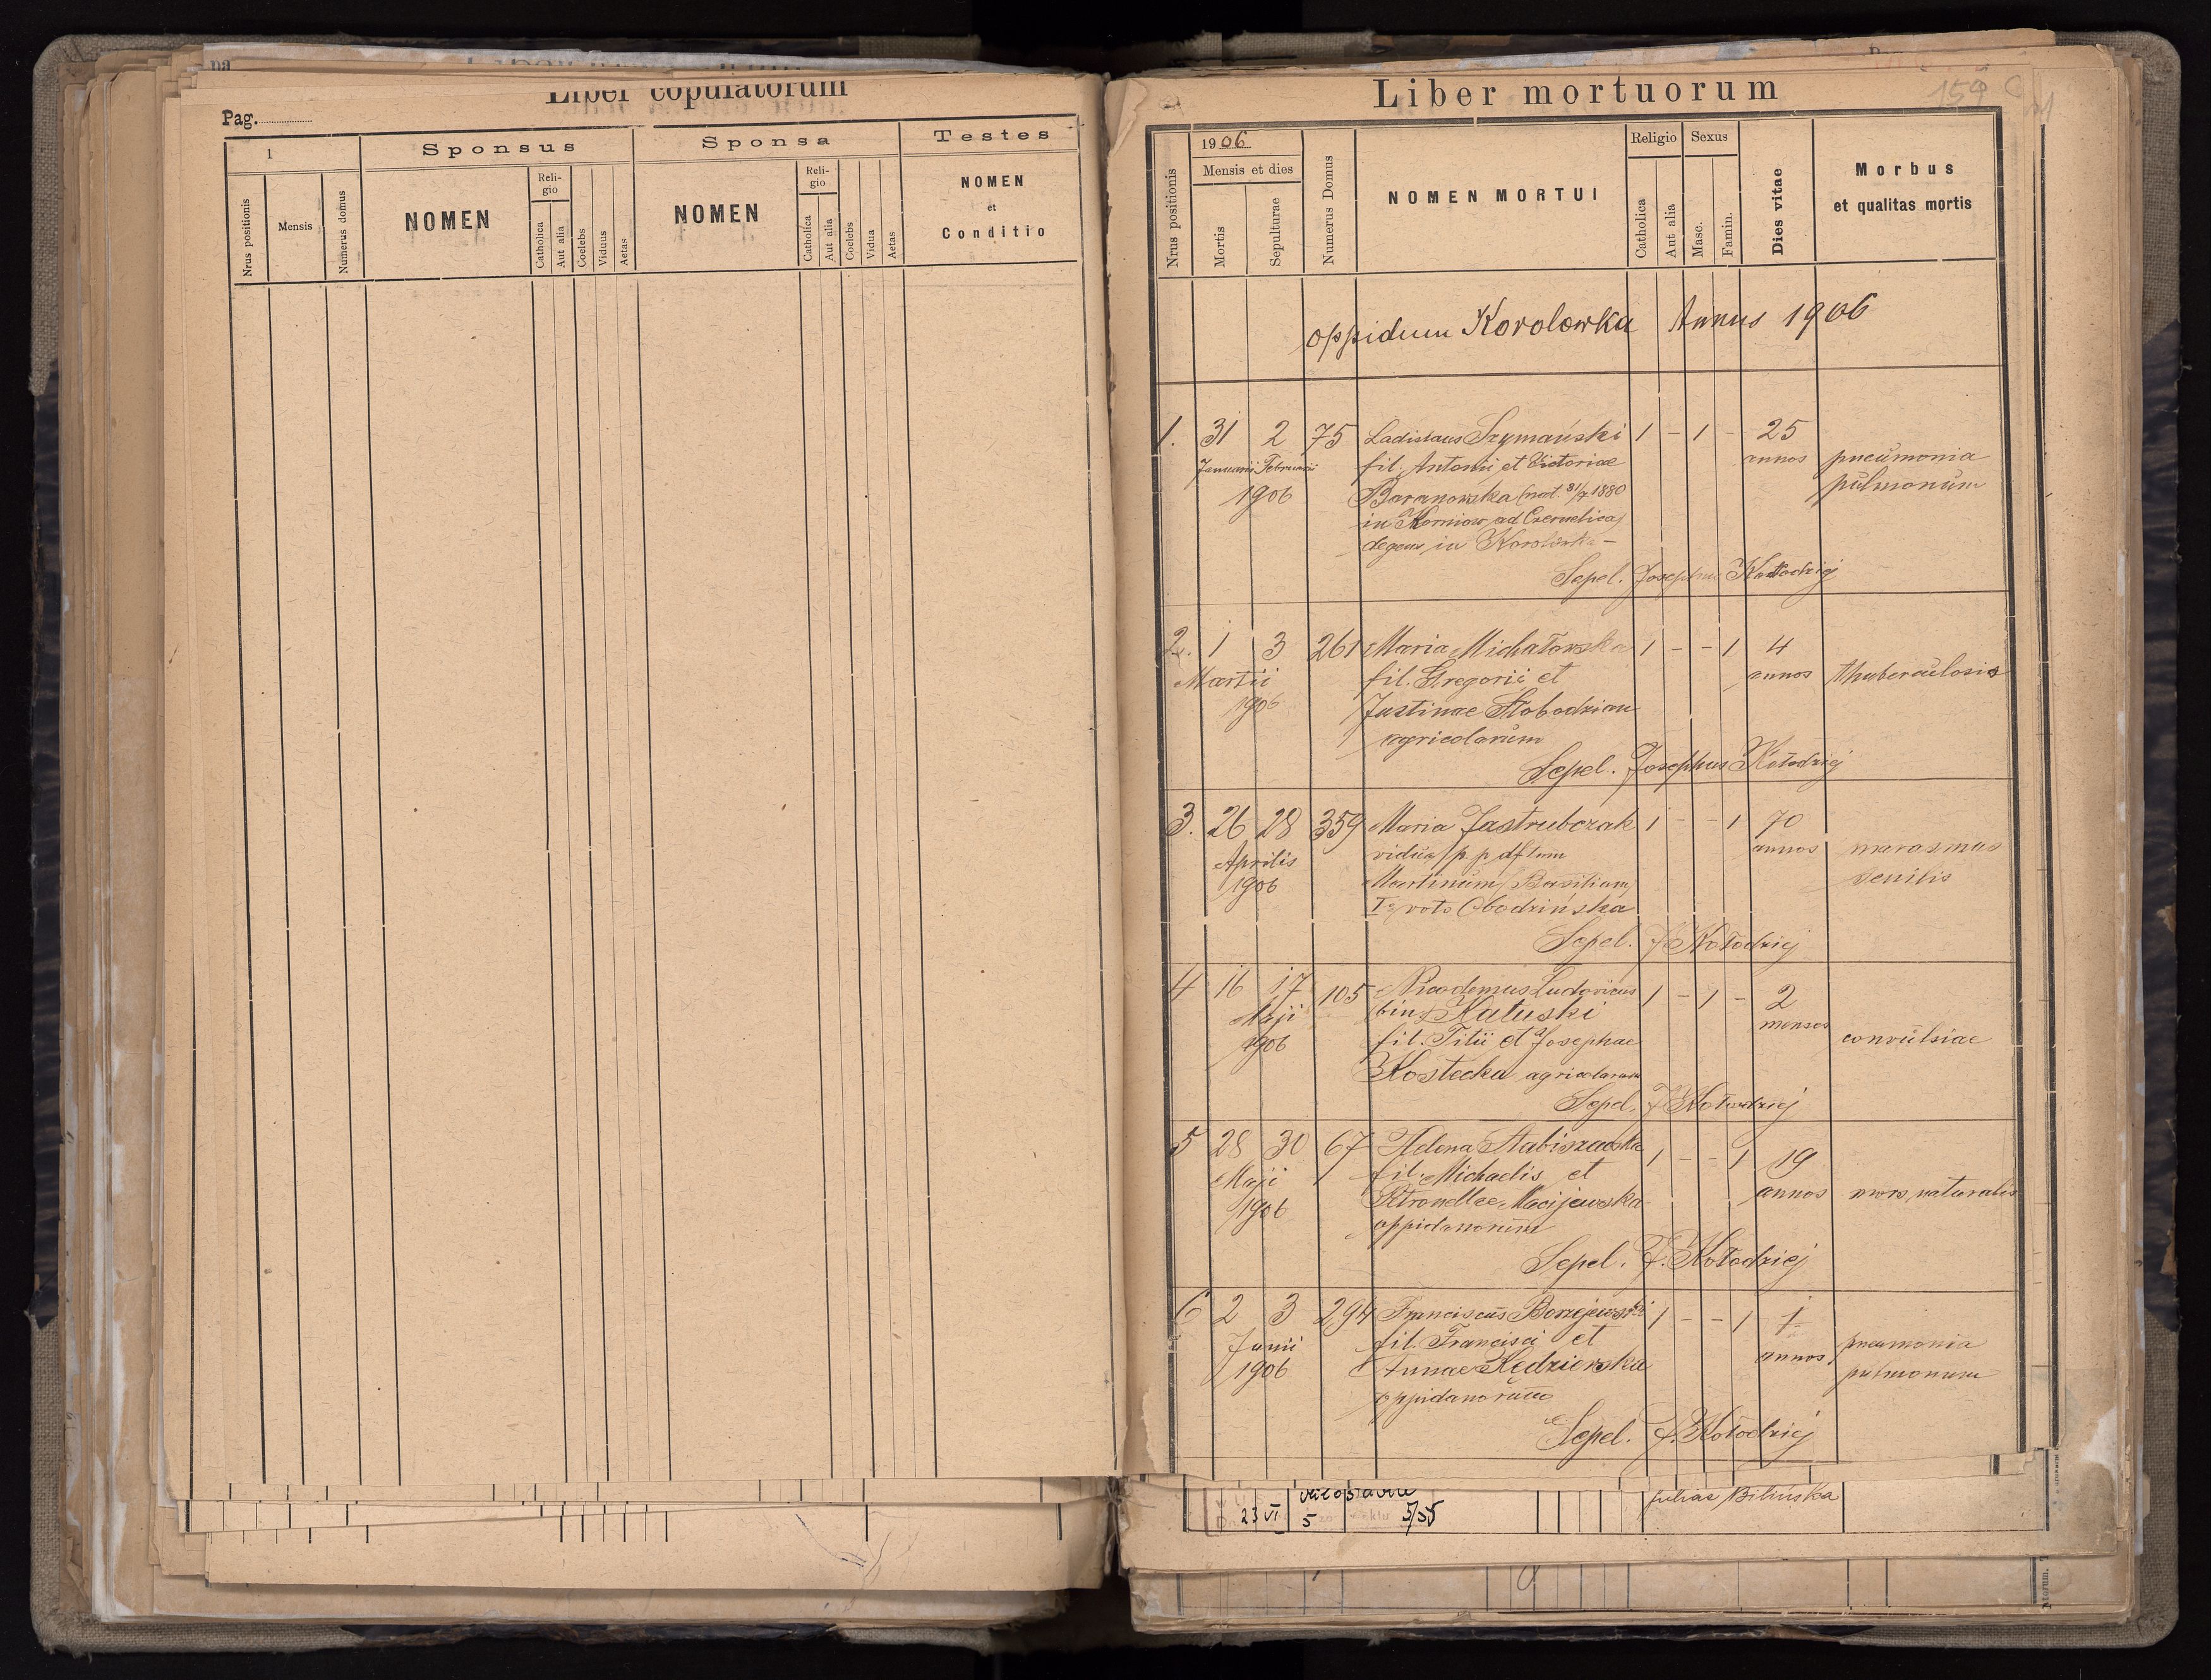 Liber copulatorum
Pag.
1
Sponsus
Sponsa
Testes
Nrus positionis
Mensis
Numerus domus
NOMEN
Religio
Catholica
Aut alia
Coelebs
Viduus
Aetas
NOMEN
Religio
Catholica
Aut alia
Coelebs
Vidua
Aetas
NOMEN
et
Conditio
Liber mortuorum
159
Nrus positionis
1906
Mensis et dies
Mortis
Sepulturae
Numerus Domus
NOMEN MORTUI
Religio
Catholica
Aut alia
Sexus
Masc.
Famin.
Dies vitae
Morbus
et qualitas mortis
oppidum Korolowka Annus 1906
1. 31 2 75 Ladislaus Szymański 1 - 1 - 25
Januarii Februarii fil. Antonii et Victoriae annos pneumonia
1906 Baranowska (nat. 31/7 1880 pulmonum
in Korniow ad Czernelica)
degens in Korolowka -
Sepel. Josephus Kołodziej
2. 1 3 261 Maria Michałowska 1 - - 1 4
Martii fil. Gregorii et annos thuberculosis
1906 Justinae Słobodzian
agricolarum
Sepel. Josephus Kołodziej
3. 26 28 359 Maria Jastrubczak 1 - - 1 70
Aprilis vidua p. p. dftum annos marasmus
1906 Martinum (Basilium) senilis
Io voto Obodzińska
Sepel. J Kołodziej
4 16 17 105 Nicodemus Ludovicus 1 - 1 - 2
Maji bin. Hałuski menses
1906 fil. Titii et Josephae convulsiae
Kostecka agricolarum
Sepel. J Kołodziej
5 28 30 67 Helena Stabiszewska 1 - - 1 19
Maji fil. Michaelis et annos mors naturalis
1906 Petronellae Macijewska
oppidanorum
Sepel. J. Kołodziej
6 2 3 294 Franciscus Borzejewski 1 - - 1 1
Junii fil. Francisci et annos pneumonia
1906 Annae Kędzierska pulmonum
oppidanorum
Sepel. J. Kołodziej
23 VI 5 5/35
Bilińska